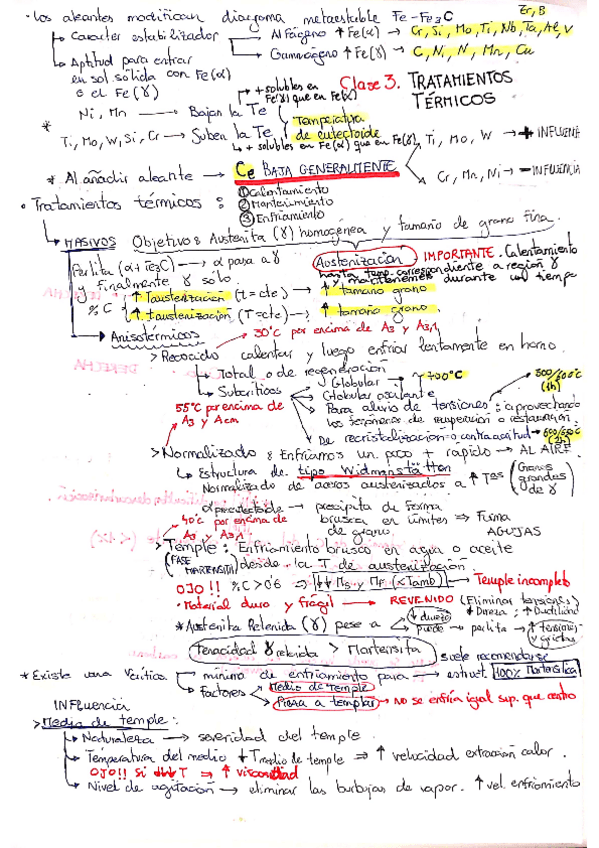 · Los aleantes modifican diagrama metaestable Fe-Fe3C
Zr, B
↳ Caracter estabilizador
Alfágeno ↑ Fe(α) → Cr, Si, Mo, Ti, Nb, Ta, Al, V
Gammágeno ↑ Fe(γ) → C, Ni, N, Mn, Cu
↳ Aptitud para entrar en sol. sólida con Fe(α) o el Fe(γ)
+ solubles en Fe(γ) que en Fe(α)
Clase 3. TRATAMIENTOS TÉRMICOS
* Ni, Mn → Bajan la Te
Temperatura de eutectoide
Ti, Mo, W, Si, Cr → Suben la Te
↳ + solubles en Fe(α) que en Fe(γ)
Ti, Mo, W → + INFLUENC
* Al añadir aleante → Ce BAJA GENERALMENTE
Cr, Mn, Ni → - INFLUENCIA
· Tratamientos térmicos:
① Calentamiento
② Mantenimiento
③ Enfriamiento
↳ MASIVOS Objetivo: Austenita (γ) homogénea y tamaño de grano fina.
Perlita (α + Fe3C) → α pasa a γ
y finalmente γ sólo
Austenización IMPORTANTE. Calentamiento
hasta temp. correspondiente a región γ
y mantenemos durante un tiempo
% C
↑ Taustenización (t = cte) → ↑ tamaño grano
↑ taustenización (T = cte) → ↑ tamaño grano.
→ Anisotérmicos
30°C por encima de A3 y A3,1
> Recocido calentar y luego enfriar lentamente en horno.
↳ Total o de regeneración
↳ Subcríticos
Globular
Globular oscilante
~ 700°C
500/600°C (1h)
Para alivio de tensiones: aprovechando
los fenómenos de recuperación o restauración.
De recristalización o contra acritud → 600/650°C (2h)
55°C por encima de A3 y Acm
> Normalizado: Enfriamos un poco + rapido → AL AIRE
↳ Estructura de tipo Widmanstätten
Normalizado de aceros austenizados a ↑ Tas (Granos grandes de γ)
α proeutectoide → precipita de forma
brusca en límites ⇒ Forma
de grano. AGUJAS
40°C por encima de A3 y A3,1
> Temple: Enfriamiento brusco en agua o aceite
(FASE MARTENSITA) desde la T de austenización.
OJO!! %C > 0'6 ⇒ ↓↓ Ms y Mf (< Tamb) → Temple incompleto
· Material duro y frágil → REVENIDO (Eliminar tensiones)
↓ Dureza; ↑ Ductilidad
* Austenita Retenida (γ) pese a
↓ dureza
puede → perlita → ↑ tensiones y grietas
Tenacidad γ retenida > Martensita
suele recomendarse
* Existe una Vcrítica
mínimo de enfriamiento para → estruct. 100% Martensítica
Factores
Medio de temple
Pieza a templar → no se enfría igual sup. que centro
INFLUENCIA
> Medio de temple:
↳ Naturaleza → severidad del temple.
↳ Temperatura del medio ↓ Tmedio de temple ⇒ ↑ velocidad extracción calor.
OJO!! Si ↓↓↓ T ⇒ ↑ viscosidad
↳ Nivel de agitación → eliminar las burbujas de vapor. ↑ vel. enfriamiento